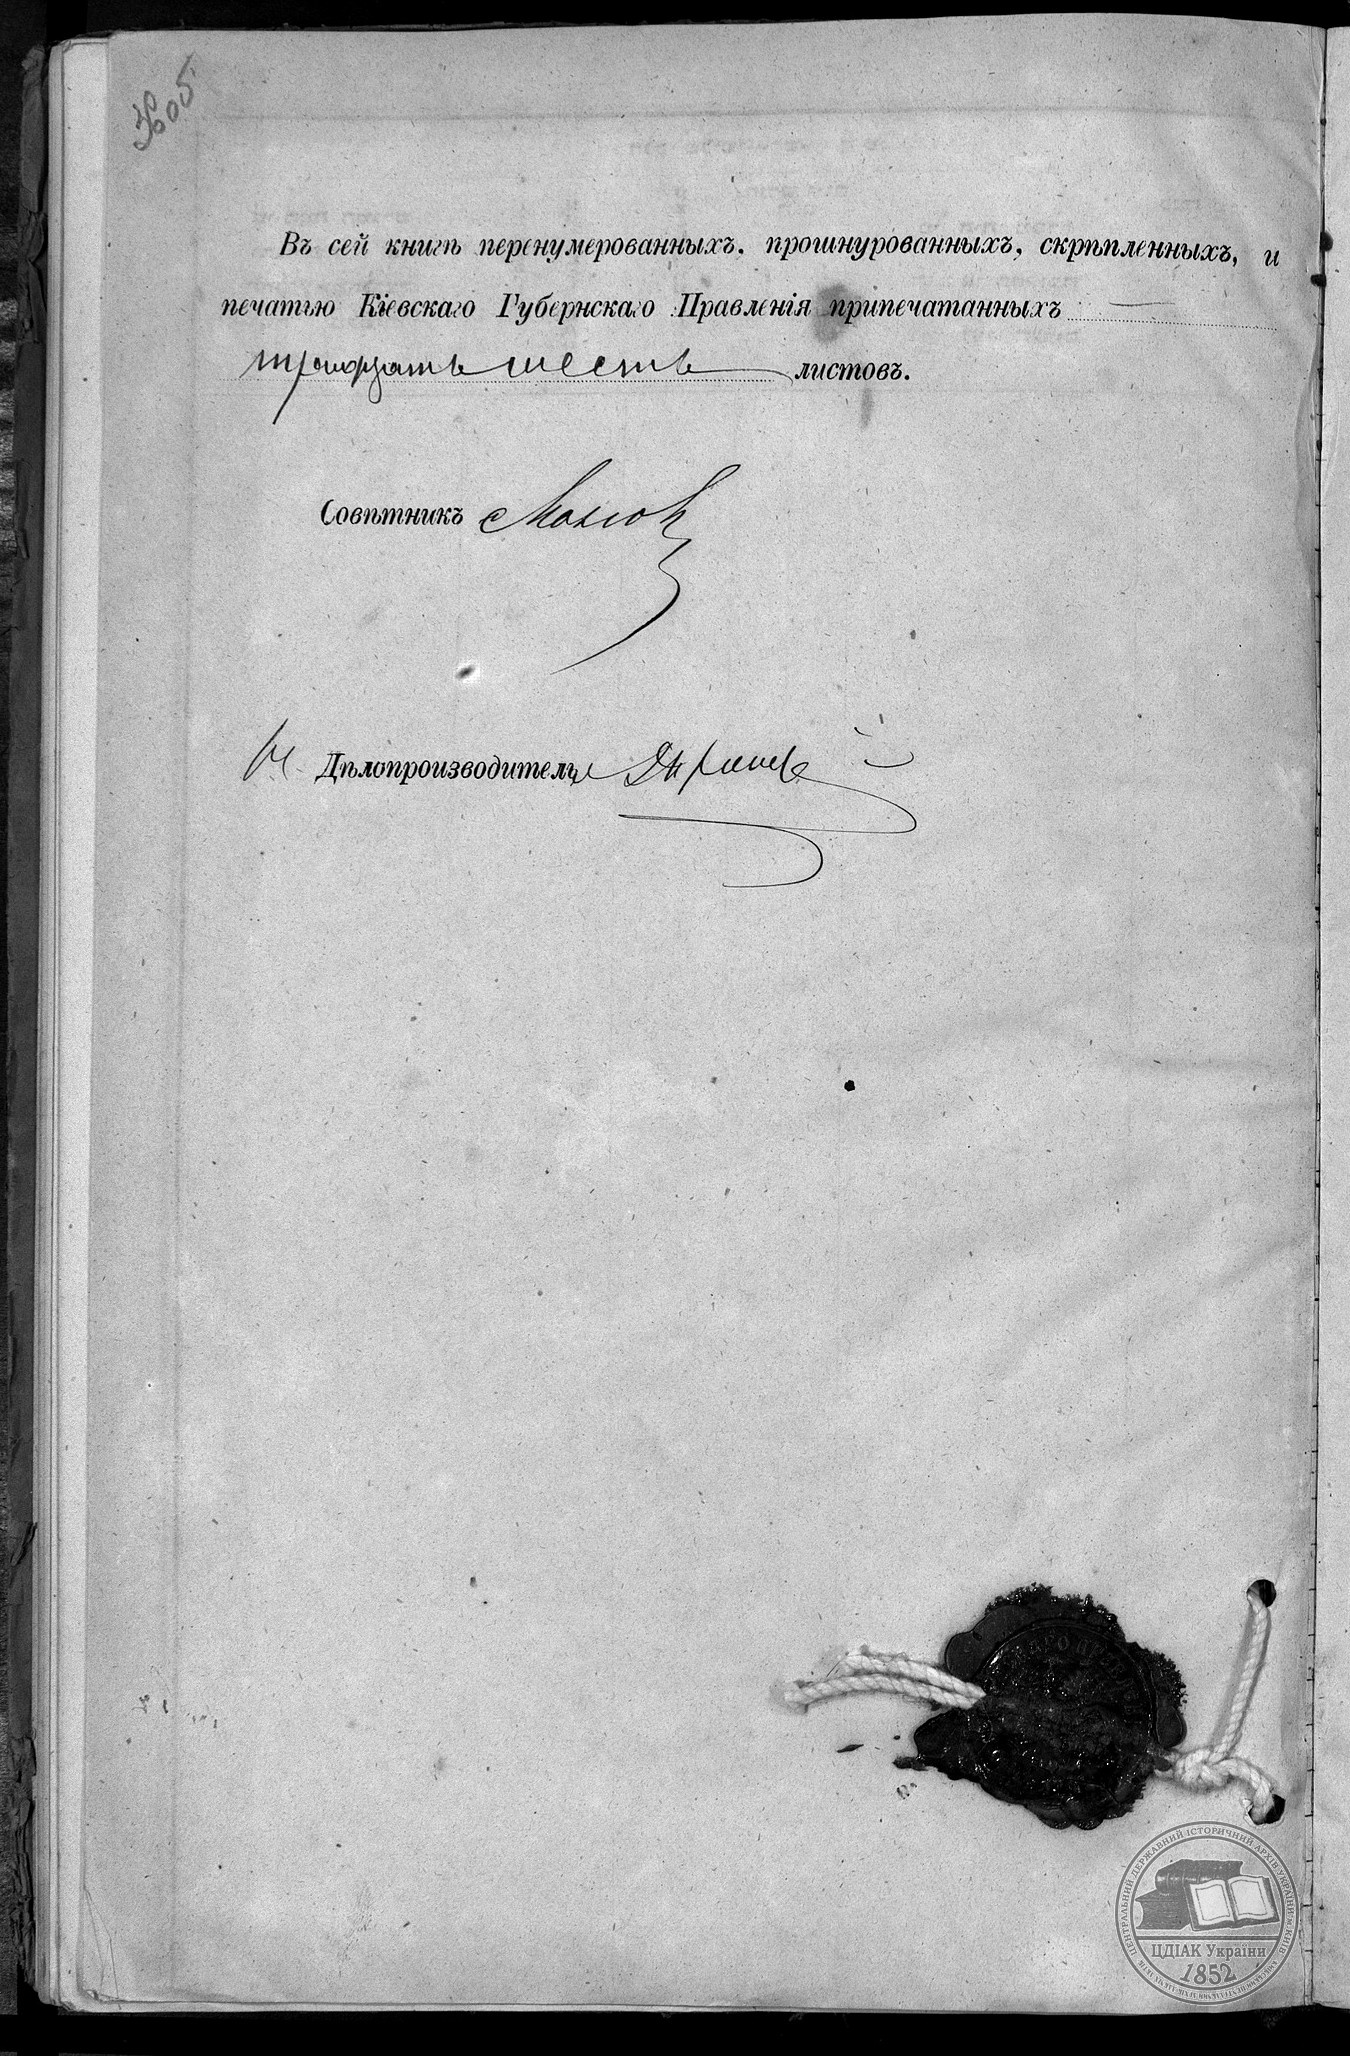 305
Въ сей книгѣ перенумерованныхъ, прошнурованныхъ, скрѣпленныхъ, и
печатью Кіевскаго Губернскаго Правленія припечатанныхъ
тридцать шесть листовъ.
Совѣтникъ
Дѣлопроизводитель
ЦЕНТРАЛЬНИЙ ДЕРЖАВНИЙ ІСТОРИЧНИЙ АРХІВ УКРАЇНИ, м. КИЇВ
ЦДІАК України
1852